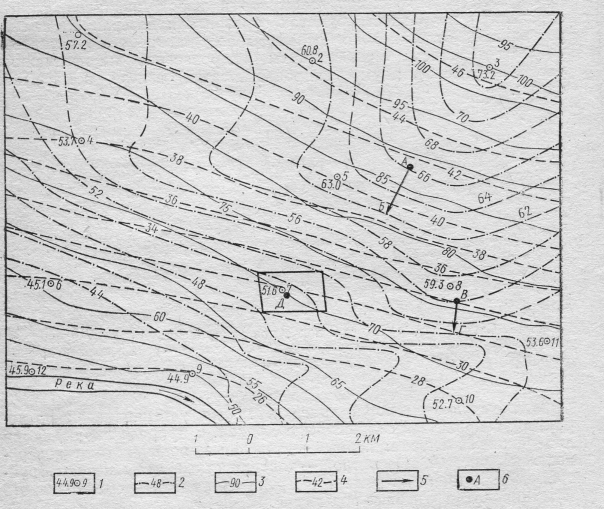 57.2
60.8 2
3
73.2
95
100
46
100
90
95
44
70
40
68
53.7 4
38
А
66
42
5
63.0
85
64
52
36
75
Б
40
62
34
56
58
80
38
36
59.3 8
48
51.6 7
В
45.1 6
44
Д
60
70
Г
53.6 11
45.9 12
9
44.9
30
река
55
26
65
28
50
52.7 10
1 0 1 2 км
44.9 9 1 48 2 90 3 42 4 5 А 6